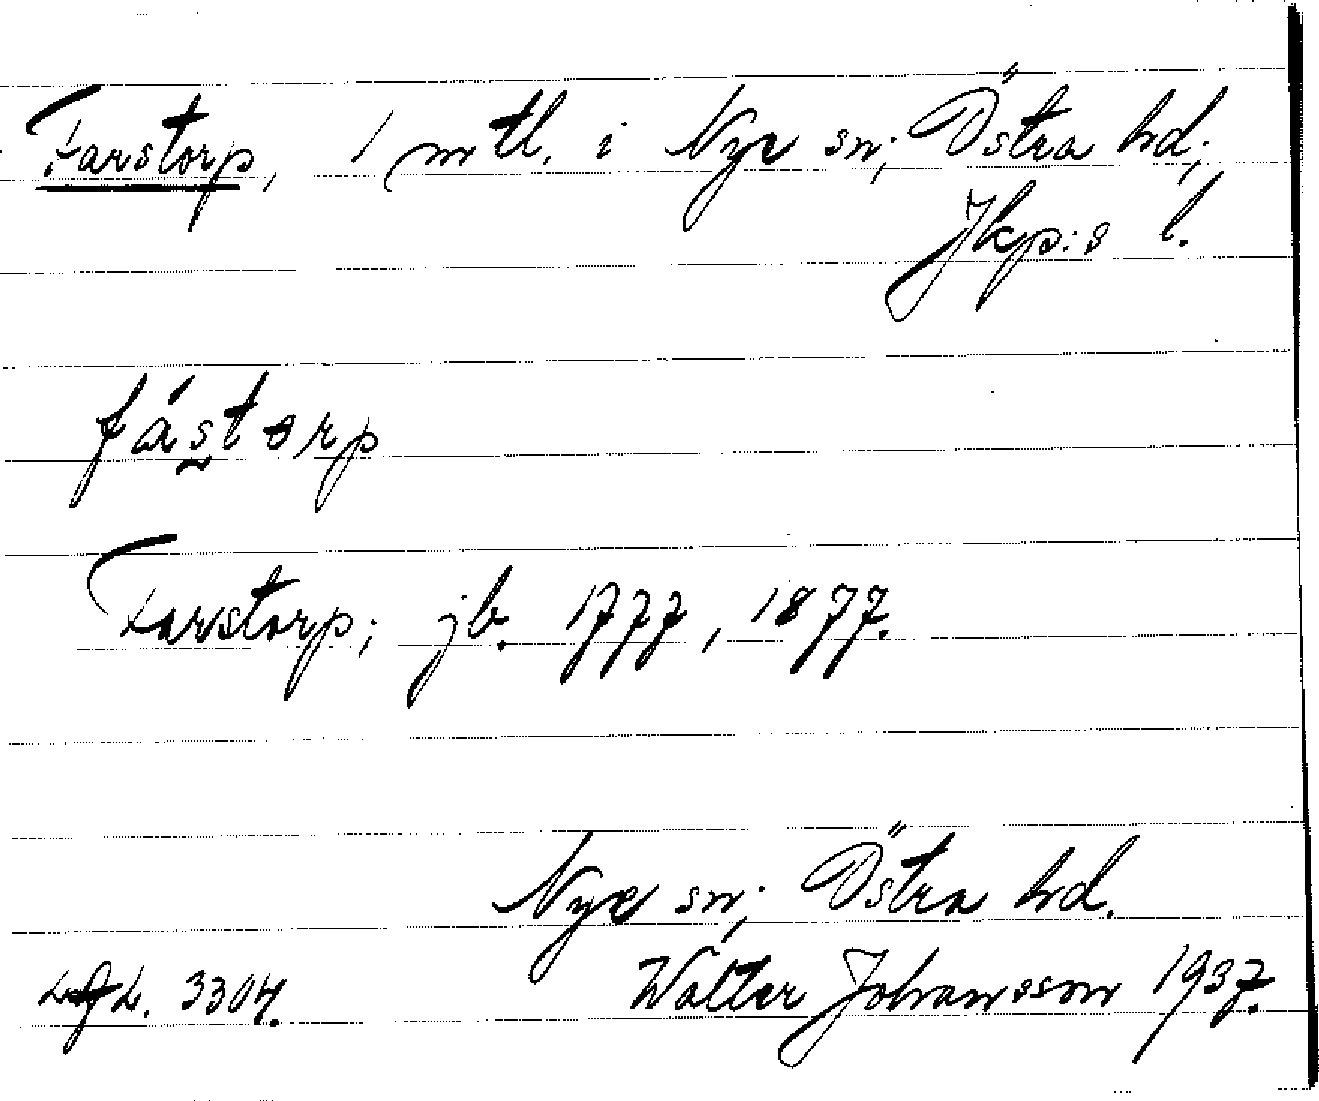 Farstorp, 1 mtl. i Nye sn; Östra hd;
Jkp:s l.
fástorp
Farstorp; jb. 1777, 1877.
Nye sn; Östra hd.
3304. Walter Johansson 1937.